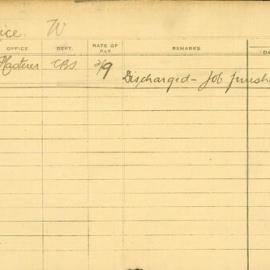 ice. W
OFFICE DEPT. RATE OF PAY REMARKS DA
CBS 2/9 Discharged - Job finish